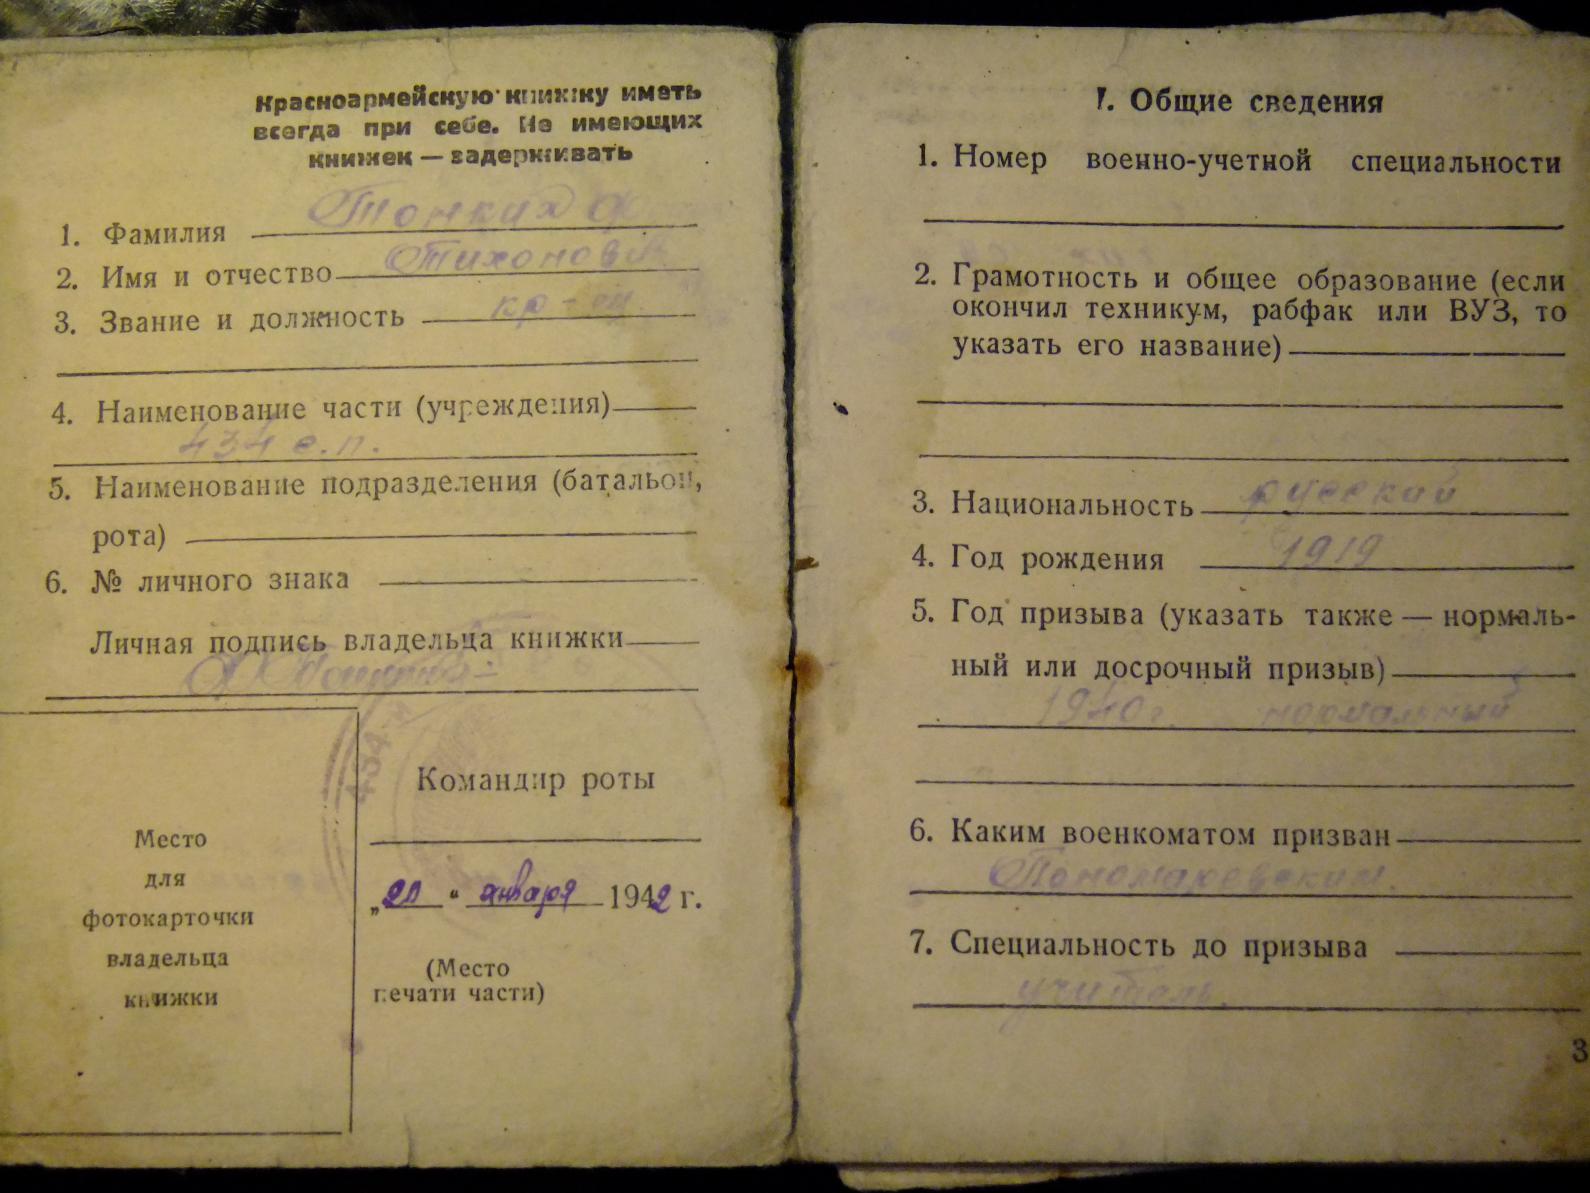 Красноармейскую книжку иметь
всегда при себе. Не имеющих
книжек — задерживать
1. Фамилия Тонких Ф
2. Имя и отчество Тихонович
3. Звание и должность кр-ец
4. Наименование части (учреждения)
434 с.п.
5. Наименование подразделения (батальон,
рота)
6. № личного знака
Личная подпись владельца книжки
Место
для
фотокарточки
владельца
книжки
Командир роты
„20“ января 1942 г.
(Место
печати части)
I. Общие сведения
1. Номер военно-учетной специальности
2. Грамотность и общее образование (если
окончил техникум, рабфак или ВУЗ, то
указать его название)
3. Национальность русский
4. Год рождения 1919
5. Год призыва (указать также — нормаль-
ный или досрочный призыв)
1940 г. нормальный
6. Каким военкоматом призван
Пономаревским.
7. Специальность до призыва
учитель.
3